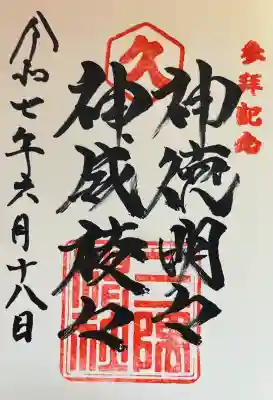 参拝記念
神徳明々
神威稜々
久
令和七年六月十八日